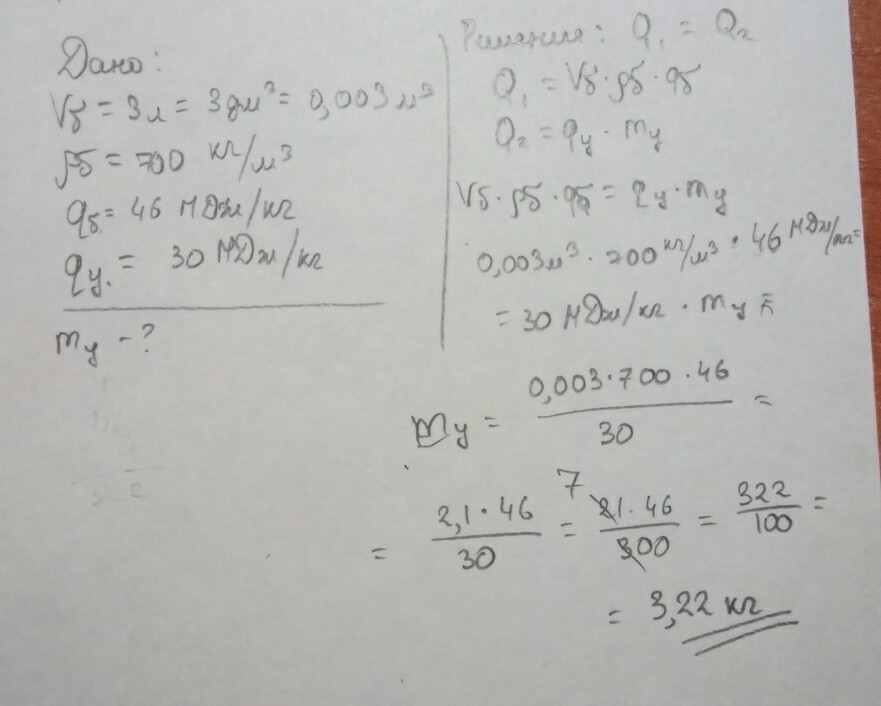 Дано:
Vб = 3л = 3дм³ = 0,003м³
ρб = 700 кг/м³
qб = 46 МДж/кг
qу. = 30 МДж/кг
mу - ?
Решение: Q₁ = Q₂
Q₁ = Vб · ρб · qб
Q₂ = qу · mу
Vб · ρб · qб = qу · mу
0,003м³ · 700 кг/м³ · 46 МДж/кг =
= 30 МДж/кг · mу
mу = 0,003·700·46 / 30 =
= 2,1·46 / 30 = 7 21·46 / 300 = 322 / 100 =
= 3,22 кг